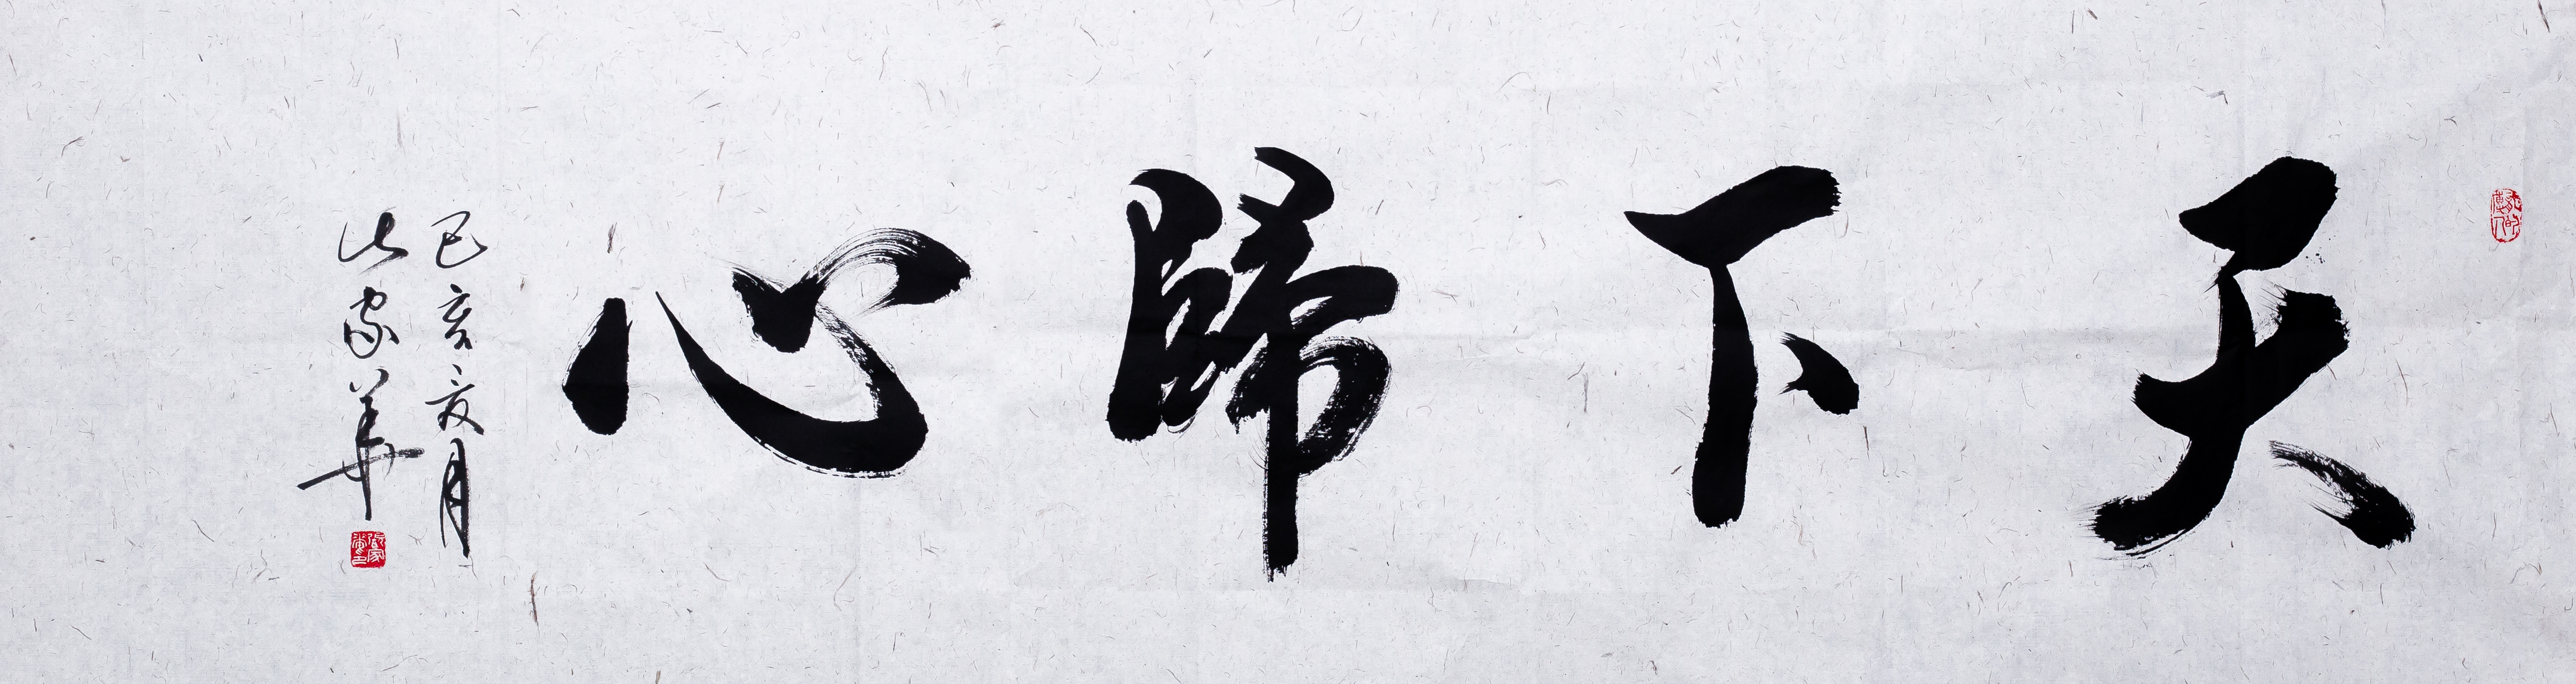 天下歸心
己亥亥月
家華